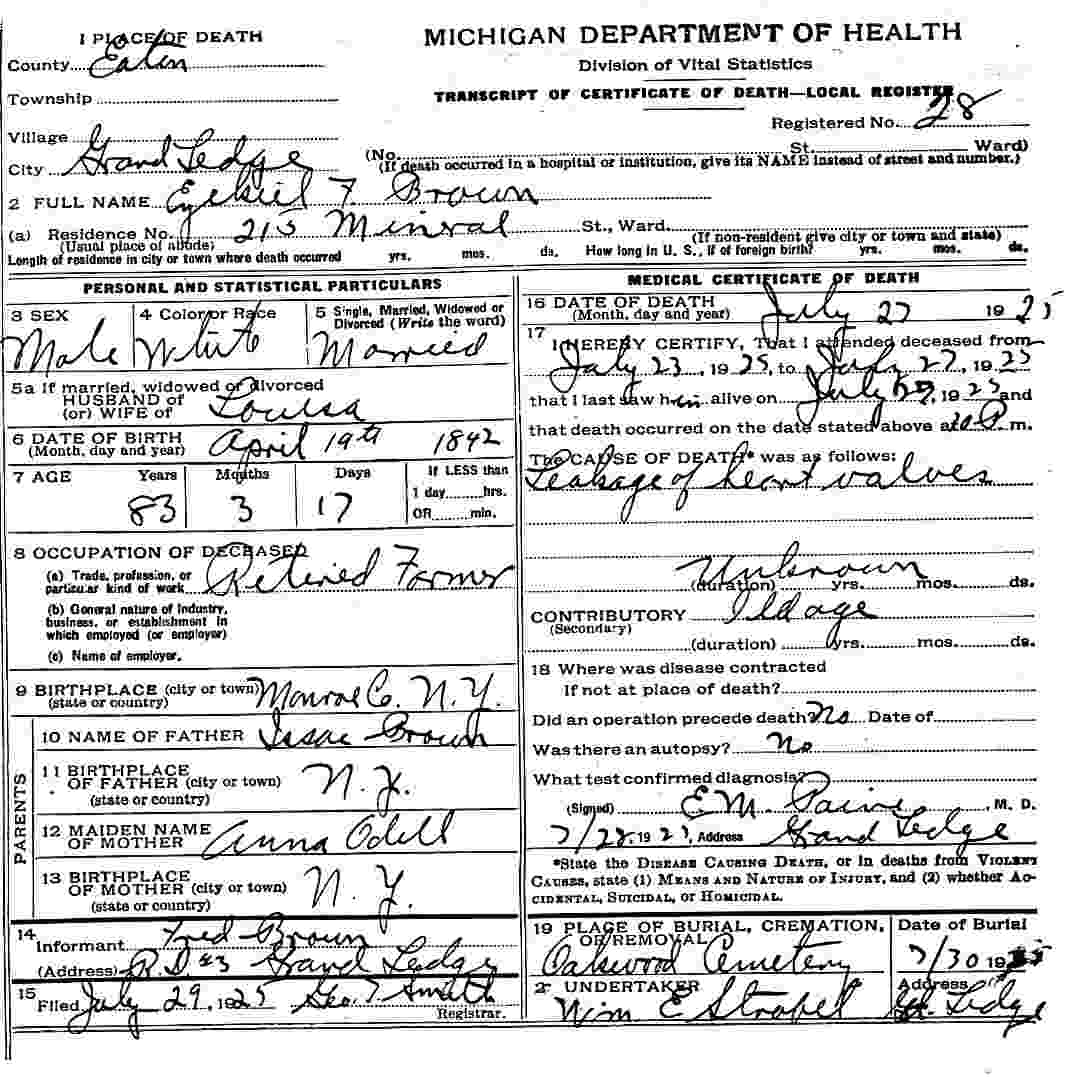 MICHIGAN DEPARTMENT OF HEALTH
Division of Vital Statistics
TRANSCRIPT OF CERTIFICATE OF DEATH—LOCAL REGISTER
Registered No. 28
1 PLACE OF DEATH
County Eaton
Township
Village
City Grand Ledge
(No. St. Ward)
(If death occurred in a hospital or institution, give its NAME instead of street and number.)
2 FULL NAME Ezekiel F. Brown
(a) Residence No. 215 Mineral St., Ward.
(Usual place of abode) (If non-resident give city or town and state)
Length of residence in city or town where death occurred yrs. mos. ds. How long in U. S., if of foreign birth? yrs. mos. ds.
PERSONAL AND STATISTICAL PARTICULARS
3 SEX 4 Color or Race 5 Single, Married, Widowed or
Divorced (Write the word)
Male White Married
5a If married, widowed or divorced
HUSBAND of
(or) WIFE of Louisa
6 DATE OF BIRTH
(Month, day and year) April 19th 1842
7 AGE Years Months Days If LESS than
1 day hrs.
83 3 17 OR min.
8 OCCUPATION OF DECEASED
(a) Trade, profession, or
particular kind of work Retired Farmer
(b) General nature of Industry,
business, or establishment in
which employed (or employer)
(c) Name of employer.
9 BIRTHPLACE (city or town) Monroe Co. N.Y.
(state or country)
PARENTS
10 NAME OF FATHER Issac Brown
11 BIRTHPLACE
OF FATHER (city or town) N.Y.
(state or country)
12 MAIDEN NAME
OF MOTHER Anna Odell
13 BIRTHPLACE
OF MOTHER (city or town) N.Y.
(state or country)
14
Informant Fred Brown
(Address) R.D. #3 Grand Ledge
15
Filed July 29, 1925 Geo. T Smith
Registrar.
MEDICAL CERTIFICATE OF DEATH
16 DATE OF DEATH
(Month, day and year) July 27 1925
17
I HEREBY CERTIFY, That I attended deceased from
July 23, 1925, to July 27, 1925
that I last saw him alive on July 27, 1925 and
that death occurred on the date stated above at P. m.
The CAUSE OF DEATH* was as follows:
Leakage of heart valves
Unknown
(duration) yrs. mos. ds.
CONTRIBUTORY Old age
(Secondary)
(duration) yrs. mos. ds.
18 Where was disease contracted
If not at place of death?
Did an operation precede death? No Date of
Was there an autopsy? No
What test confirmed diagnosis?
(Signed) E M. Paine, M. D.
7/28, 1925, Address Grand Ledge
*State the DISEASE CAUSING DEATH, or in deaths from VIOLENT
CAUSES, state (1) MEANS AND NATURE OF INJURY, and (2) whether AC-
CIDENTAL, SUICIDAL, or HOMICIDAL.
19 PLACE OF BURIAL, CREMATION, Date of Burial
OR REMOVAL
Oakwood Cemetery 7/30 1925
2 UNDERTAKER Address
Wm E Strobel Gd. Ledge